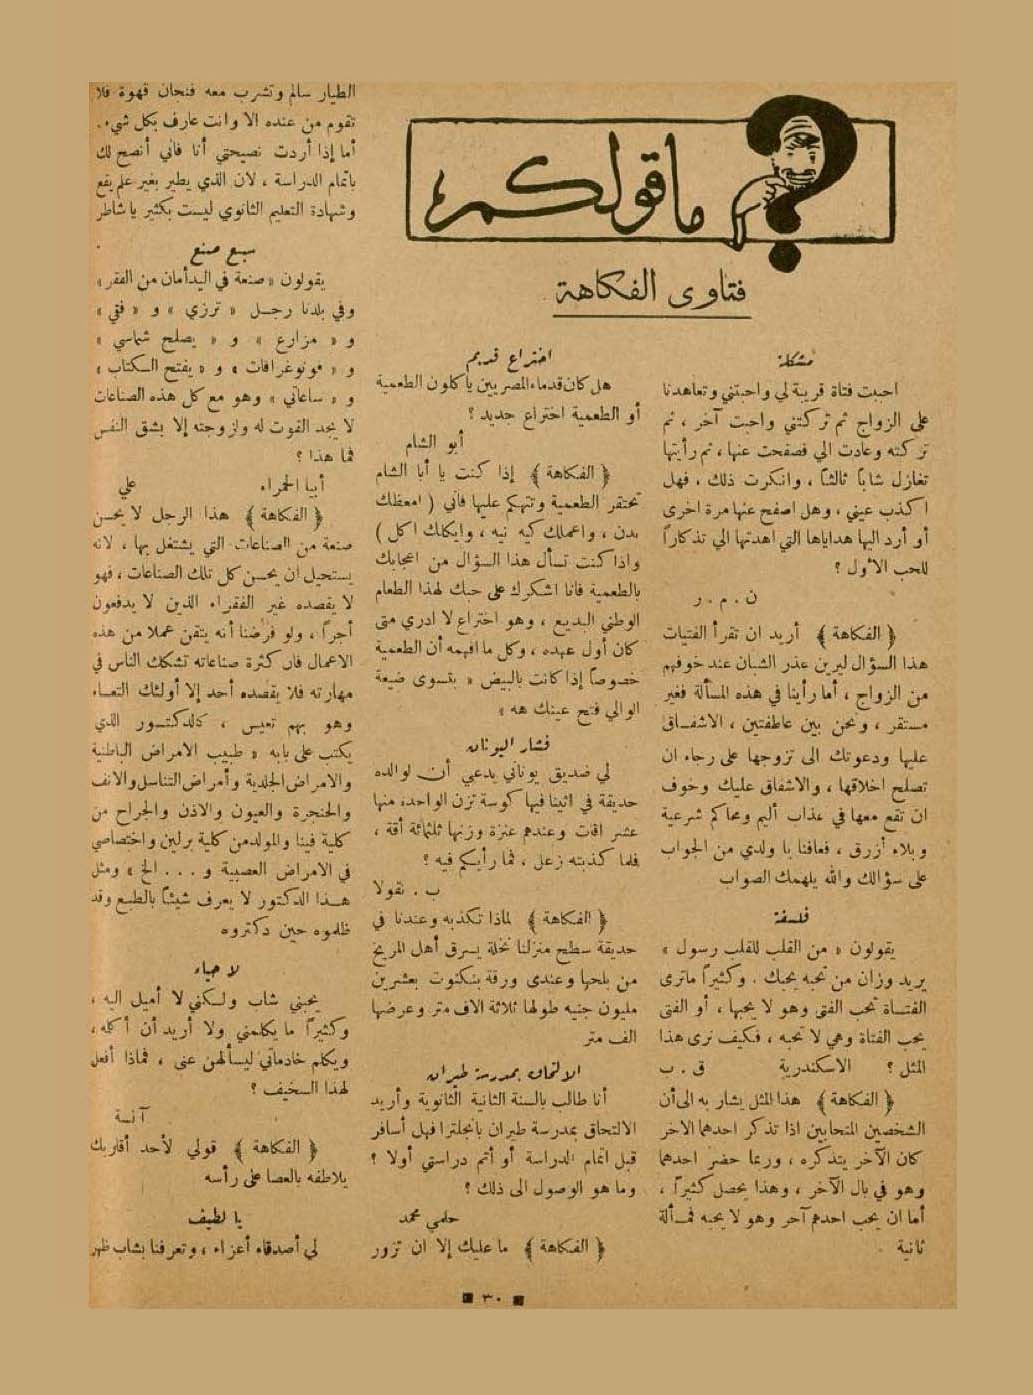 ما قولكم
فتاوى الفكاهة
مشكلة
احببت فتاة قريبة لي واحبتني وتعاهدنا
على الزواج ثم تركتني واحبت آخر ، ثم
تركته وعادت الي فصفحت عنها ، ثم رأيتها
تغازل شاباً ثالثاً ، وانكرت ذلك . فهل
اكذب عيني ، وهل اصفح عنها مرة اخرى
أو أرد اليها هداياها التي اهدتها الي تذكاراً
للحب الأول ؟
ن . م . ر
﴿ الفكاهة ﴾ أريد ان تقرأ الفتيات
هذا السؤال ليرين عذر الشبان عند خوفهم
من الزواج ، أما رأينا في هذه المسألة فغير
مستقر ، ونحن بين عاطفتين ، الاشفاق
عليها ودعوتك الى تزوجها على رجاء ان
تصلح اخلاقها ، والاشفاق عليك وخوف
ان تقع معها في عذاب أليم ومحاكم شرعية
وبلاء أزرق ، فعافنا يا ولدي من الجواب
على سؤالك والله يلهمك الصواب
فلسفة
يقولون « من القلب للقلب رسول »
يريدوان من تحبه يحبك . وكثيراً ماترى
الفتاة تحب الفتى وهو لا يحبها ، أو الفتى
يحب الفتاة وهي لا تحبه ، فكيف نرى هذا
المثل ؟ الاسكندرية ق . ب
﴿ الفكاهة ﴾ هذا المثل يشار به الى أن
الشخصين المتحابين اذا تذكر احدهما الاخر
كان الآخر يتذكره ، وربما حضر احدهما
وهو في بال الآخر ، وهذا يحصل كثيراً ،
أما ان يحب احدهم آخر وهو لا يحبه فمسألة
ثانية
اختراع قديم
هل كان قدماء المصريين يأكلون الطعمية
أو الطعمية اختراع جديد ؟
أبو الشام
﴿ الفكاهة ﴾ إذا كنت يا أبا الشام
تحتقر الطعمية وتتهكم عليها فاني ( امعظك
بدن ، واعملك كيه نيه ، وايكلك اكل )
واذا كنت تسأل هذا السؤال من اعجابك
بالطعمية فانا اشكرك على حبك لهذا الطعام
الوطني البديع ، وهو اختراع لا ادري متى
كان أول عهده ، وكل ما افهمه أن الطعمية
خصوصاً إذا كانت بالبيض « بتسوى ضيعة
الوالي فتح عينك هه »
فشار اليونان
لي صديق يوناني يدعي أن لوالده
حديقة في اثينا فيها كوسة تزن الواحدة منها
عشر اقات وعندهم عنزة وزنها ثلثمائة أقة ،
فلما كذبته زعل ، فما رأيكم فيه ؟
ب . نقولا
﴿ الفكاهة ﴾ لماذا تكذبه وعندنا في
حديقة سطح منزلنا نخلة يسرق أهل المريخ
من بلحها وعندى ورقة بنكنوت بعشرين
مليون جنيه طولها ثلاثة الاف متر وعرضها
الف متر
الالتحاق بمدرسة طيران
أنا طالب بالسنة الثانية الثانوية وأريد
الالتحاق بمدرسة طيران بانجلترا فهل أسافر
قبل اتمام الدراسة أو أتم دراستي أولا ؟
وما هو الوصول الى ذلك ؟
حلمي محمد
﴿ الفكاهة ﴾ ما عليك إلا ان تزور
الطيار سالم وتشرب معه فنجان قهوة فلا
تقوم من عنده الا وانت عارف بكل شيء .
أما إذا أردت نصيحتي أنا فاني أنصح لك
باتمام الدراسة ، لان الذي يطير بغير علم يقع
وشهادة التعليم الثانوي ليست بكثير يا شاطر
سبع صنع
يقولون « صنعة في اليد أمان من الفقر »
وفي بلدنا رجل « ترزي » و « فقي »
و « مزارع » و « يصلح شماسي »
و « فونوغرافات » و « يفتح الكتاب »
و « ساعاتي » وهو مع كل هذه الصناعات
لا يجد القوت له ولزوجته إلا بشق النفس
فما هذا ؟
أبيا الحمراء علي
﴿ الفكاهة ﴾ هذا الرجل لا يحسن
صنعة من الصناعات التي يشتغل بها ، لانه
يستحيل ان يحسن كل تلك الصناعات ، فهو
لا يقصده غير الفقراء الذين لا يدفعون
أجراً ، ولو فرضنا أنه يتقن عملا من هذه
الاعمال فان كثرة صناعاته تشكك الناس في
مهارته فلا يقصده أحد إلا أولئك التعساء
وهو بهم تعيس ، كالدكتور الذي
يكتب على بابه « طبيب الامراض الباطنية
والامراض الجلدية وأمراض التناسل والانف
والحنجرة والعيون والاذن والجراح من
كلية فينا والمولد من كلية برلين واختصاصي
في الامراض العصبية و . . . الخ » ومثل
هذا الدكتور لا يعرف شيئاً بالطبع وقد
ظلموه حين دكتروه
لا حياء
يحبني شاب ولكني لا أميل اليه ،
وكثيراً ما يكلمني ولا أريد أن أكله ،
ويكلم خادماتي ليسألهن عنى ، فماذا أفعل
لهذا السخيف ؟
آنسة
﴿ الفكاهة ﴾ قولي لأحد أقاربك
يلاطفه بالعصا على رأسه
يا لطيف
لي أصدقاء أعزاء ، وتعرفنا بشاب ظهر
٣٠